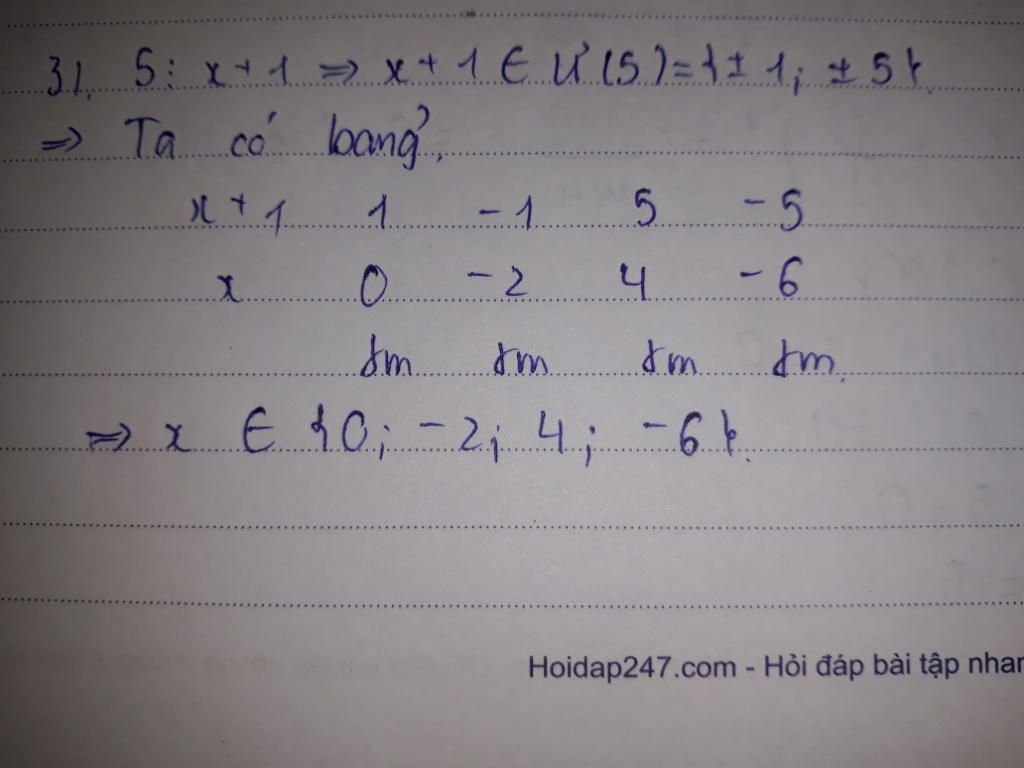 31. 5 ⋮ x + 1 ⇒ x + 1 ∈ Ư(5) = {± 1; ± 5}.
⇒ Ta có bảng,
x + 1 1 - 1 5 - 5
x 0 - 2 4 - 6
tm tm tm tm.
⇒ x ∈ {0; - 2; 4; - 6}.
Hoidap247.com - Hỏi đáp bài tập nhan